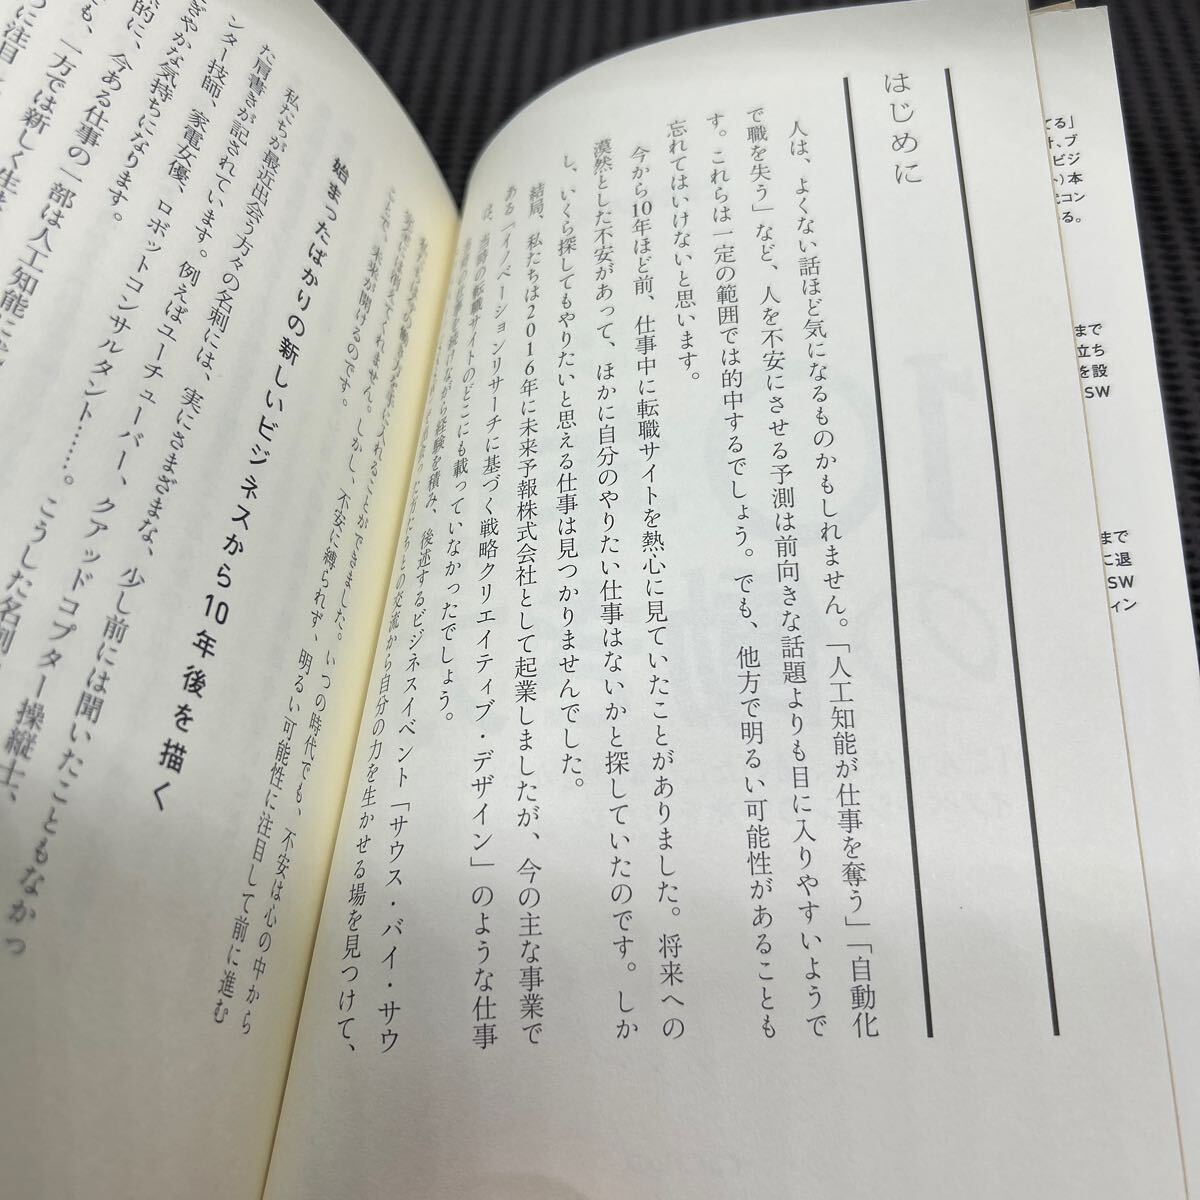 はじめに
人は、よくない話ほど気になるものかもしれません。「人工知能が仕事を奪う」「自動化
で職を失う」など、人を不安にさせる予測は前向きな話題よりも目に入りやすいようで
す。これらは一定の範囲では的中するでしょう。でも、他方で明るい可能性があることも
忘れてはいけないと思います。
今から10年ほど前、仕事中に転職サイトを熱心に見ていたことがありました。将来への
漠然とした不安があって、ほかに自分のやりたい仕事はないかと探していたのです。しか
し、いくら探してもやりたいと思える仕事は見つかりませんでした。
結局、私たちは2016年に未来予報株式会社として起業しましたが、今の主な事業で
ある「イノベーションリサーチに基づく戦略クリエイティブ・デザイン」のような仕事
は、当時の転職サイトのどこにも載っていなかったでしょう。
ながら経験を積み、後述するビジネスイベント「サウス・バイ・サウ
たちとの交流から自分の力を生かせる場を見つけて、
ることができました。いつの時代でも、不安は心の中から
消えてくれません。しかし、不安に縛られず、明るい可能性に注目して前に進む
ことで、未来が開けるのです。
始まったばかりの新しいビジネスから10年後を描く
私たちが最近出会う方々の名刺には、実にさまざまな、少し前には聞いたこともなかっ
た肩書きが記されています。例えばユーチューバー、クアッドコプター操縦士、
ンター技師、家電女優、ロボットコンサルタント……。こうした名刺
ぎやかな気持ちになります。
的に、今ある仕事の一部は人工知能に
も、一方では新しく生
に注目
てる」ブ
ジ
本
コン
る。
まで
立ち
を設
SW
まで
に退
SW
ィン